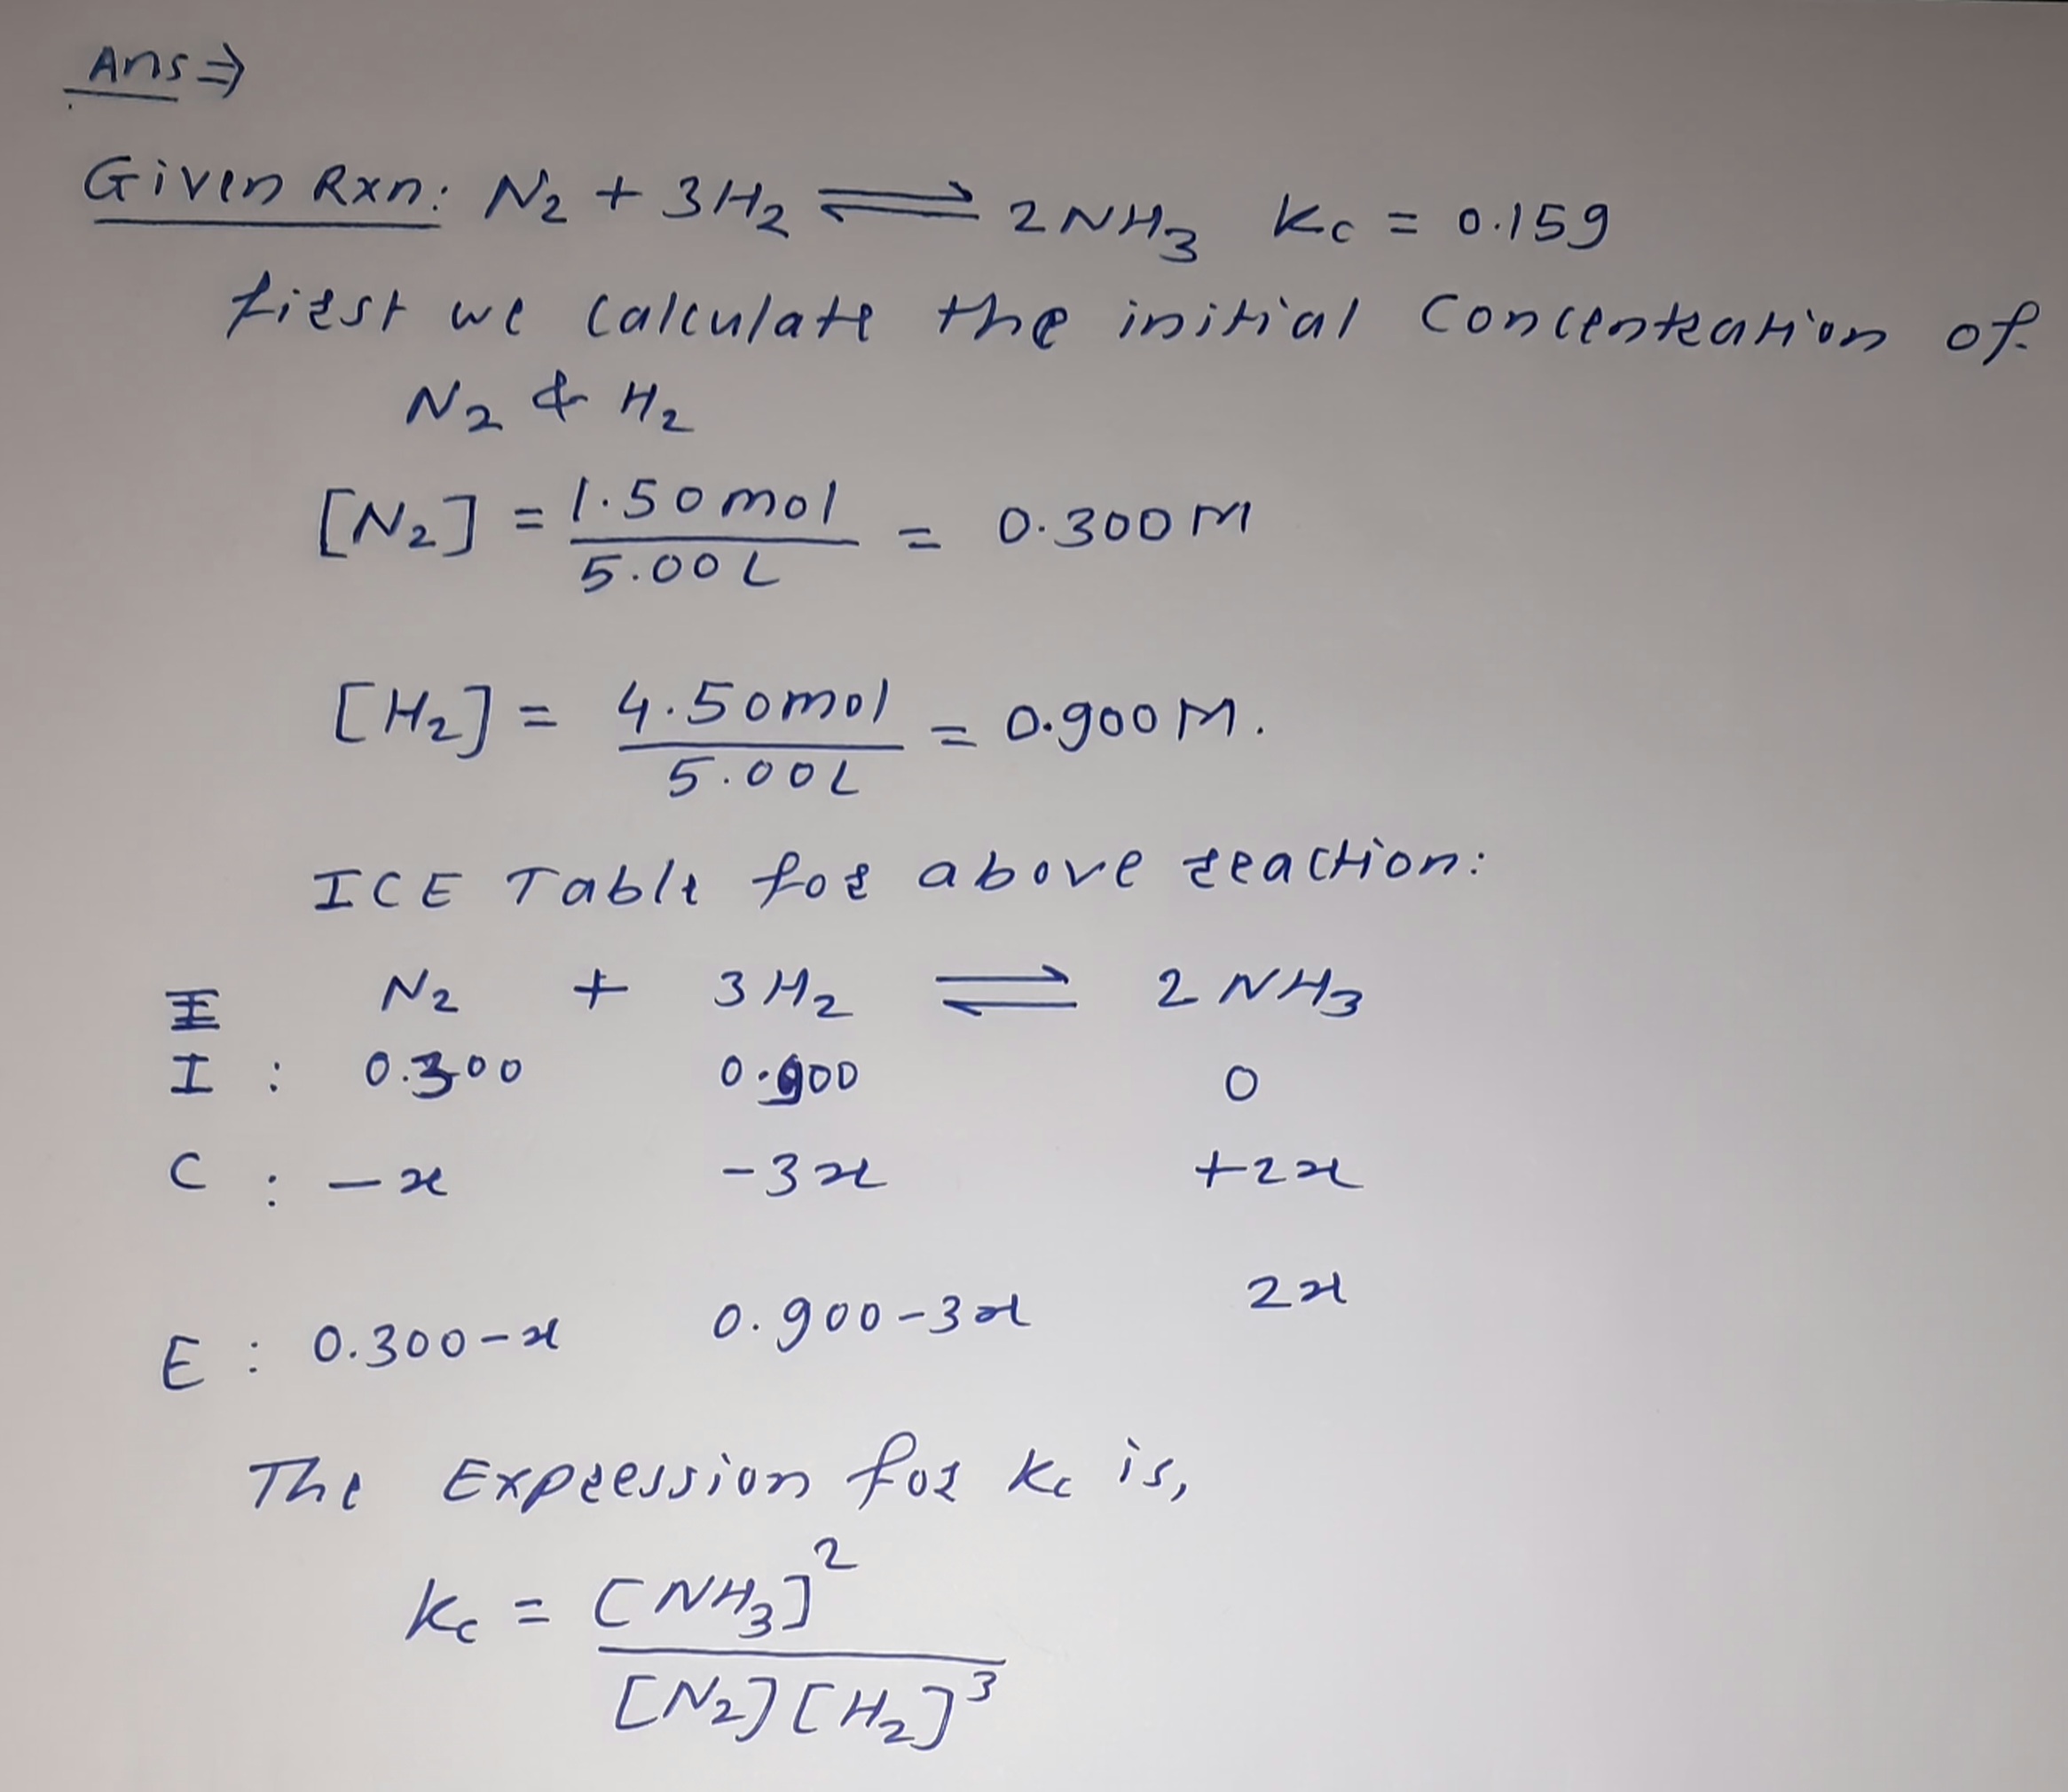 Ans ⇒
Given Rxn: N₂ + 3H₂ ⇌ 2NH₃ Kc = 0.159
first we calculate the initial concentration of
N₂ & H₂
[N₂] = 1.50mol / 5.00L = 0.300M
[H₂] = 4.50mol / 5.00L = 0.900M.
ICE Table for above reaction:
N₂ + 3H₂ ⇌ 2NH₃
I : 0.300 0.900 0
C : -x -3x +2x
E : 0.300-x 0.900-3x 2x
The Expression for Kc is,
Kc = [NH₃]² / [N₂][H₂]³